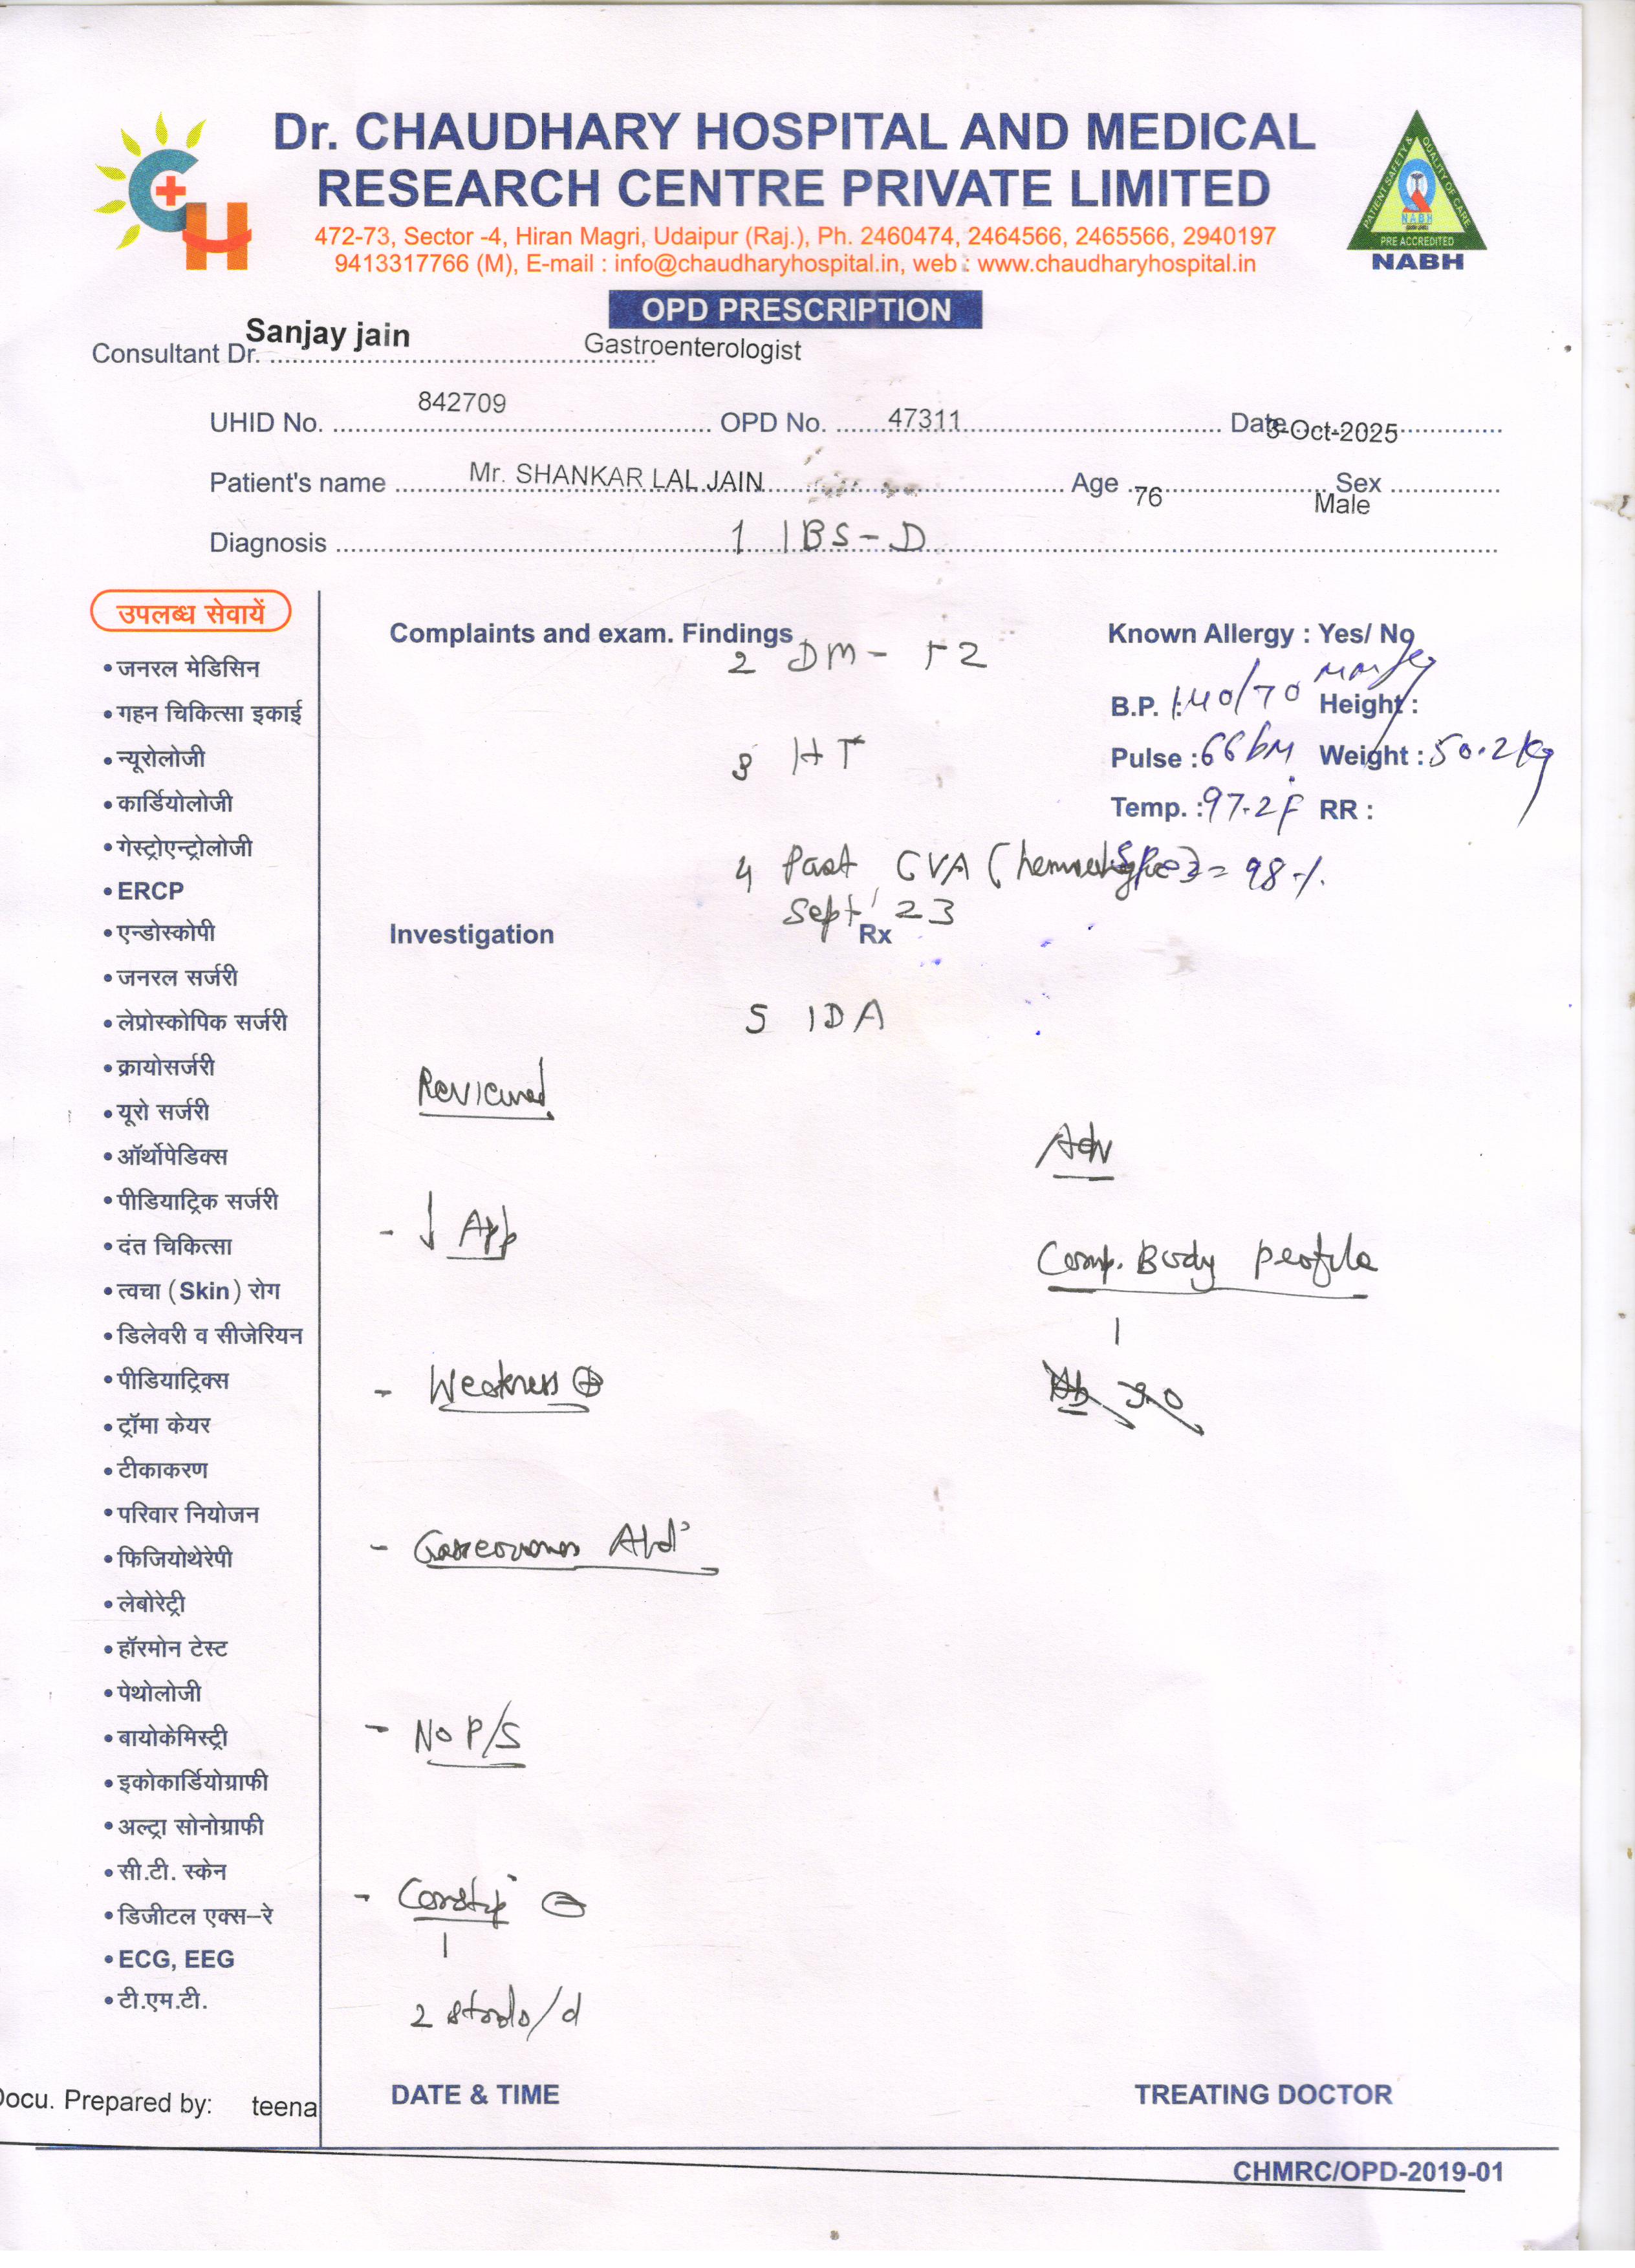 Dr. CHAUDHARY HOSPITAL AND MEDICAL
RESEARCH CENTRE PRIVATE LIMITED
472-73, Sector -4, Hiran Magri, Udaipur (Raj.), Ph. 2460474, 2464566, 2465566, 2940197
9413317766 (M), E-mail : info@chaudharyhospital.in, web : www.chaudharyhospital.in
PATIENT SAFETY & QUALITY OF CARE
NABH
PRE ACCREDITED
NABH
OPD PRESCRIPTION
Consultant Dr. Sanjay jain Gastroenterologist
UHID No. 842709 OPD No. 47311 Date 3-Oct-2025
Patient's name Mr. SHANKAR LAL JAIN Age 76 Sex Male
Diagnosis 1 IBS-D
उपलब्ध सेवायें
• जनरल मेडिसिन
• गहन चिकित्सा इकाई
• न्यूरोलोजी
• कार्डियोलोजी
• गेस्ट्रोएन्ट्रोलोजी
• ERCP
• एन्डोस्कोपी
• जनरल सर्जरी
• लेप्रोस्कोपिक सर्जरी
• क्रायोसर्जरी
• यूरो सर्जरी
• ऑर्थोपेडिक्स
• पीडियाट्रिक सर्जरी
• दंत चिकित्सा
• त्वचा (Skin) रोग
• डिलेवरी व सीजेरियन
• पीडियाट्रिक्स
• ट्रॉमा केयर
• टीकाकरण
• परिवार नियोजन
• फिजियोथेरेपी
• लेबोरेट्री
• हॉरमोन टेस्ट
• पेथोलोजी
• बायोकेमिस्ट्री
• इकोकार्डियोग्राफी
• अल्ट्रा सोनोग्राफी
• सी.टी. स्केन
• डिजीटल एक्स-रे
• ECG, EEG
• टी.एम.टी.
Complaints and exam. Findings
2 DM - T2
3 HT
4 Past CVA (
Sept' 23
5 IDA
Known Allergy : Yes/ No
B.P. : 140/70 mmHg Height :
Pulse : 66 bM Weight : 50.2 Kg
Temp. : 97.2 F RR :
SPO2 = 98 %
Investigation
Rx
Reviewed
- ↓ App
- Weakness ⊕
- Gaseousness Abd'
- No P/S
- Constip ⊖
2 stools/d
Adv
Comp. Body Profile
DATE & TIME
TREATING DOCTOR
Docu. Prepared by: teena
CHMRC/OPD-2019-01